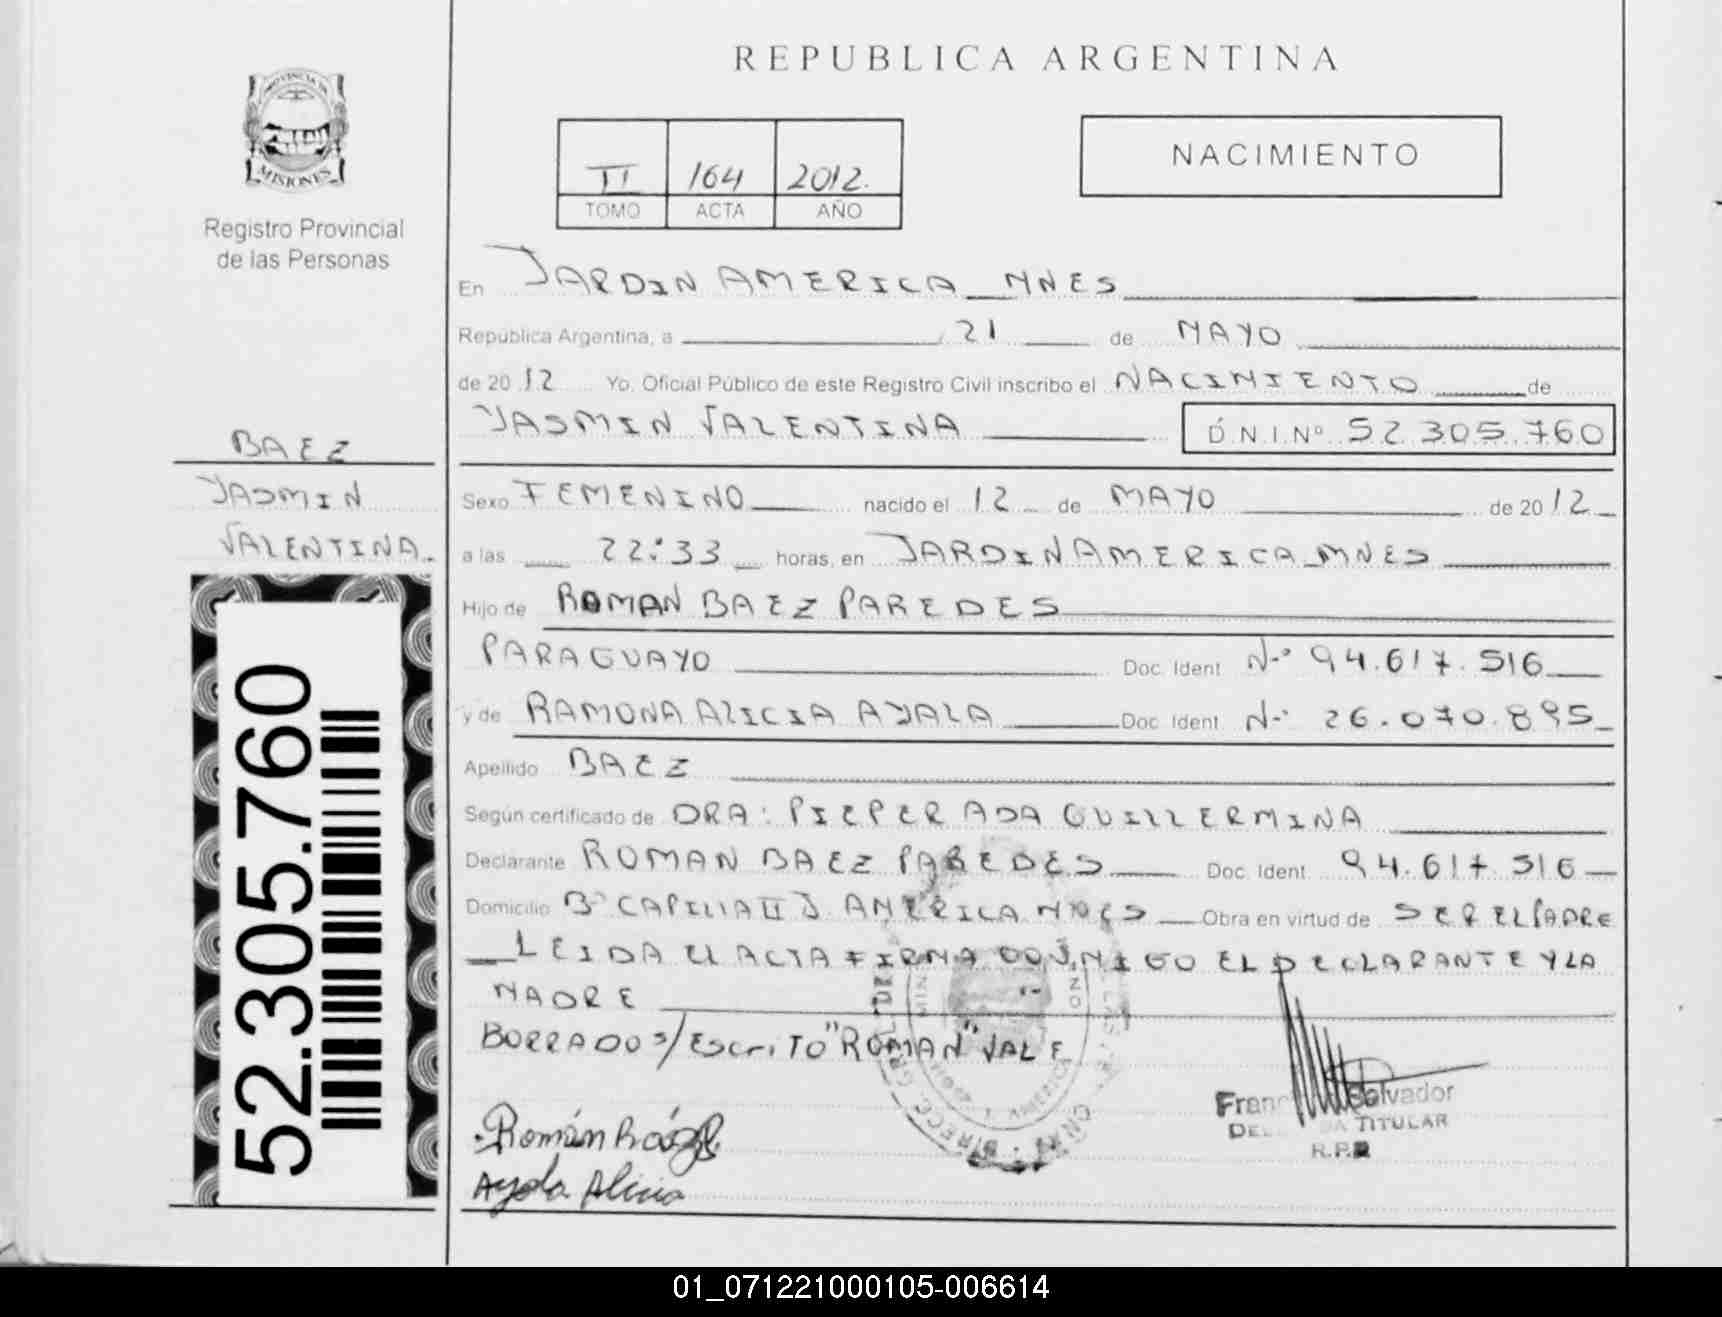 REPUBLICA ARGENTINA
PROVINCIA DE
MISIONES
Registro Provincial
de las Personas
II 164 2012.
TOMO ACTA AÑO
NACIMIENTO
En JARDIN AMERICA MNES
República Argentina, a 21 de MAYO
de 2012 Yo, Oficial Público de este Registro Civil inscribo el NACIMIENTO de
JASMIN VALENTINA D.N.I.Nº 52.305.760
BAEZ
JASMIN
VALENTINA
Sexo FEMENINO nacido el 12 de MAYO de 2012
a las 22:33 horas, en JARDIN AMERICA MNES
Hijo de ROMAN BAEZ PAREDES
PARAGUAYO Doc. Ident N-º 94.617.516
y de RAMONA ALICIA AYALA Doc. Ident N-º 26.070.895
Apellido BAEZ
Según certificado de DRA: PIEPER ADA GUILLERMINA
Declarante ROMAN BAEZ PAREDES Doc. Ident 94.617.516
Domicilio Bº CAPILLA II J. AMERICA MNES Obra en virtud de SER EL PADRE
LEIDA EL ACTA FIRMA CONMIGO EL DECLARANTE Y LA
MADRE
BORRADO s/ EscriTO "ROMAN" VALE
52.305.760
Román Báez
Ayala Alicia
Salvador
TITULAR
R.P.P
01_071221000105-006614